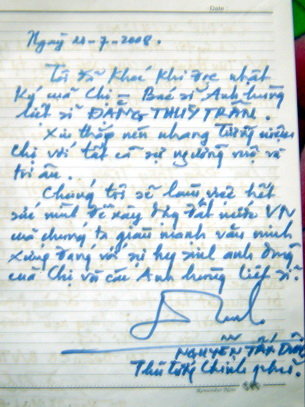 Date :
Ngày 20-7-2008.
Tôi đã khóc khi đọc nhật
ký của Chị - Bác sĩ Anh hùng
liệt sĩ ĐẶNG THÙY TRÂM.
Xin thắp nén nhang tưởng niệm
chị với tất cả sự ngưỡng mộ và
tri ân.
Chúng tôi sẽ làm việc hết
sức mình để xây dựng đất nước VN
của chúng ta giàu mạnh văn minh
xứng đáng với sự hy sinh anh dũng
của Chị và các Anh hùng liệt sĩ.
NGUYỄN TẤN DŨNG
Thủ tướng Chính phủ.